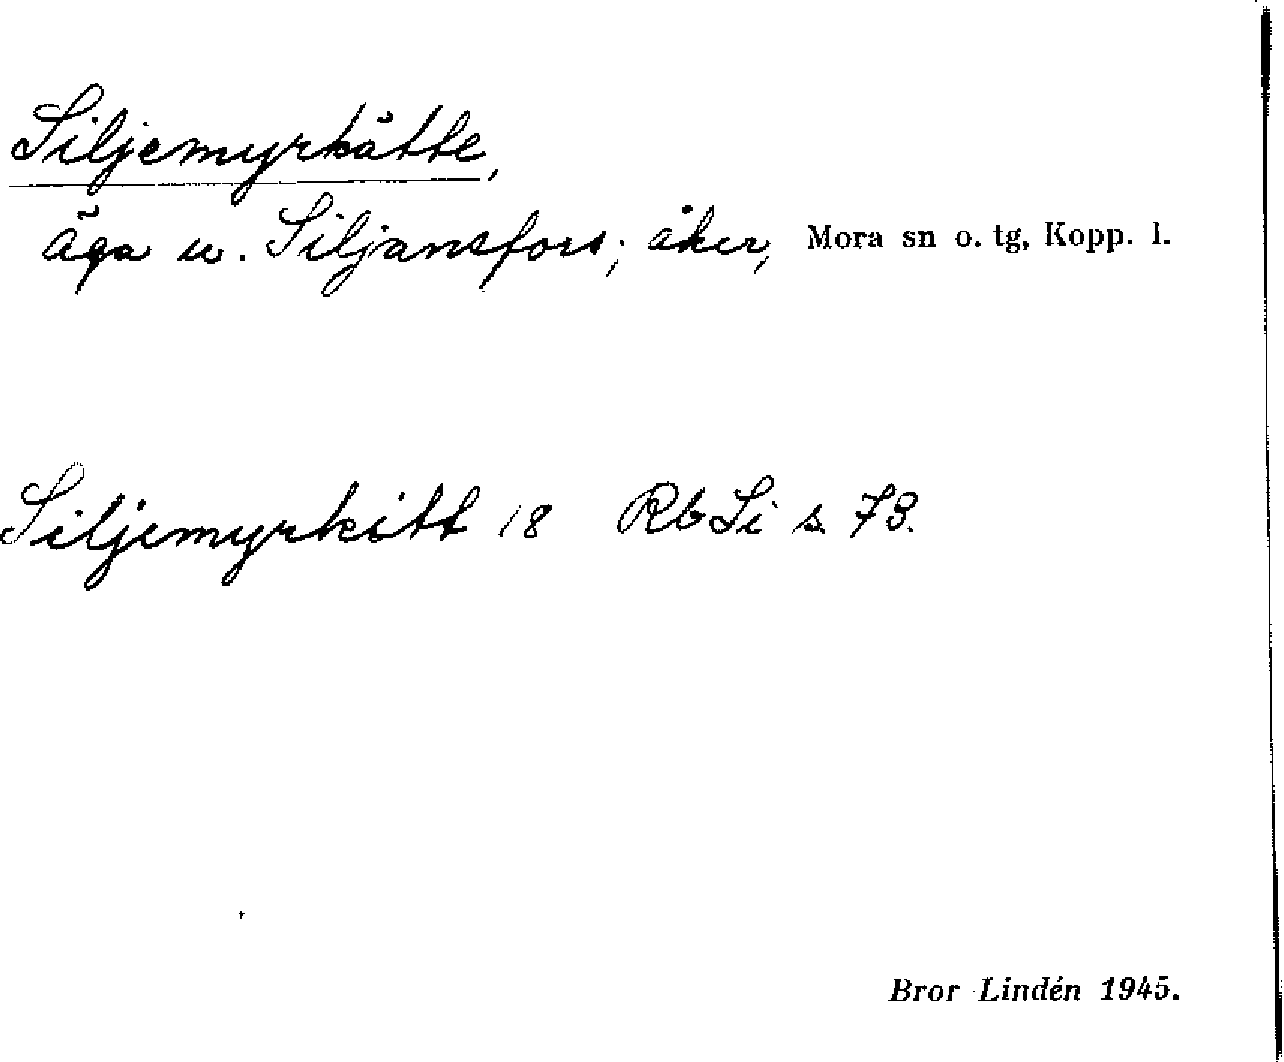 Siljemyrkätte,
Äga u. Siljansfors; åker, Mora sn o. tg, Kopp. l.
Siljemyrkitt 18 Rb Li s. 73.
Bror Lindén 1945.